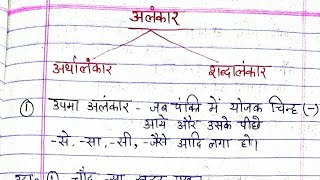 अलंकार
अर्थालंकार शब्दालंकार
① उपमा अलंकार - जब पंक्ति में योजक चिन्ह (-)
आये और उसके पीछे
-से, -सा, -सी, -जैसे आदि लगा हो।